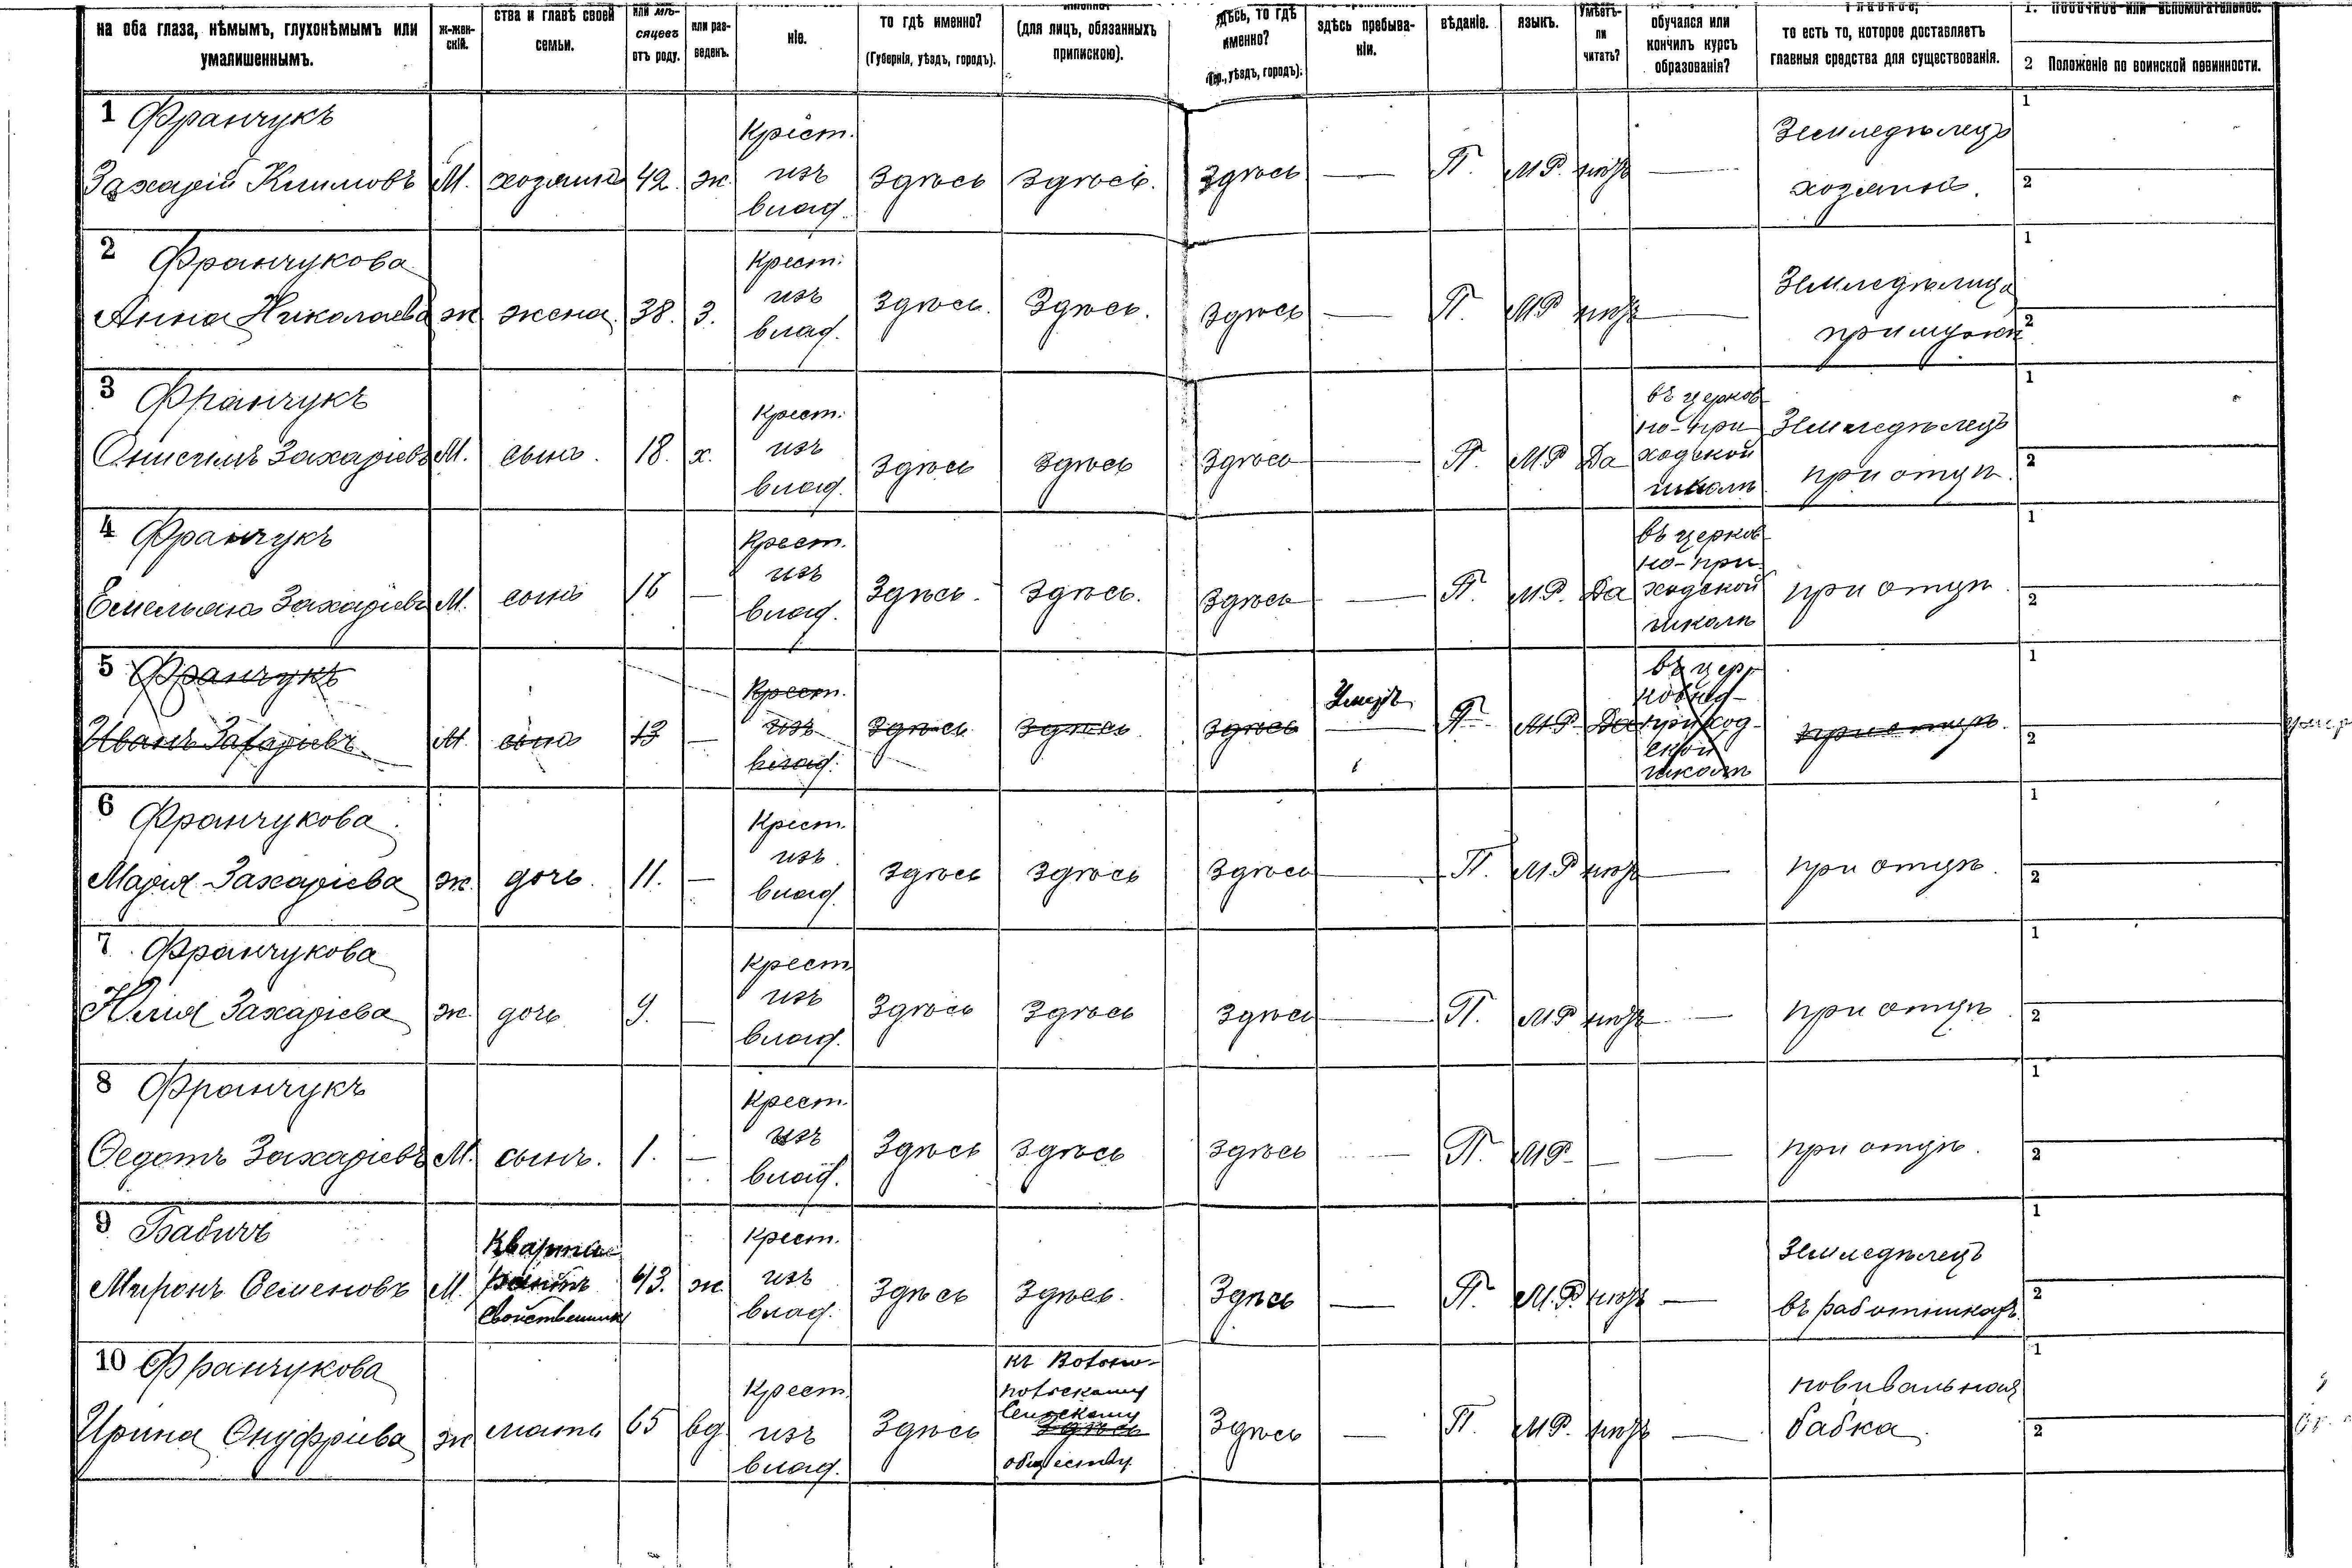 на оба глаза, нѣмымъ, глухонѣмымъ или
умалишеннымъ.
ж-жен-
скій.
ства и главѣ своей
семьи.
или мѣ-
сяцевъ
отъ роду.
или раз-
веденъ.
ніе.
то гдѣ именно?
(Губернія, уѣздъ, городъ).
(для лицъ, обязанныхъ
припискою).
здѣсь, то гдѣ
именно?
(Губ., уѣздъ, городъ):
здѣсь пребыва-
ніи.
вѣданіе.
языкъ.
Умѣетъ-
ли
читать?
обучался или
кончилъ курсъ
образованія?
Главное,
то есть то, которое доставляетъ
главныя средства для существованія.
1. Побочное или вспомогательное.
2 Положеніе по воинской повинности.
1 Франчукъ
Захарій Климовъ М. хозяинъ 42. ж.
Крест.
изъ
влад.
Здѣсь Здѣсь. Здѣсь — П. М.Р. нѣтъ —
Земледѣлецъ
хозяинъ.
1
2
2 Франчукова
Анна Николаева ж жена. 38. З.
Крест.
изъ
влад.
Здѣсь. Здѣсь. Здѣсь — П. МР нѣтъ —
Земледѣлица
при мужѣ
1
2
3 Франчукъ
Онисимъ Захаріевъ М. сынъ. 18. х.
Крест.
изъ
влад.
Здѣсь Здѣсь Здѣсь — П. МР Да
въ церков-
но-при
ходской
школѣ
Земледѣлецъ
при отцѣ.
1
2
4 Франчукъ
Емельянъ Захаріевъ М. сынъ 16 —
Крест.
изъ
влад.
Здѣсь. Здѣсь. Здѣсь — П. М.Р. Да
въ церков-
но-при
ходской
школѣ
при отцѣ.
1
2
5 Франчукъ
Иванъ Захаріевъ М. сынъ 13 —
Крест.
изъ
влад.
Здѣсь Здѣсь Здѣсь
Умеръ
— П. М.Р. Да
въ цер-
ковно-
приход-
ской
школѣ
при отцѣ.
1
2
умер
6 Франчукова
Марія Захаріева ж. дочь. 11. —
Крест.
изъ
влад.
Здѣсь Здѣсь Здѣсь — П. М.Р нѣтъ —
при отцѣ.
1
2
7 Франчукова
Юлія Захаріева ж. дочь 9. —
Крест
изъ
влад.
Здѣсь Здѣсь Здѣсь — П. МР нѣтъ —
при отцѣ
1
2
8 Франчукъ
Ѳедотъ Захаріевъ М. сынъ. 1. —
Крест.
изъ
влад.
Здѣсь Здѣсь Здѣсь — П. МР — —
при отцѣ.
1
2
9 Бабичъ
Миронъ Семеновъ М.
Кварти-
рантъ
Свойственникъ
43. ж
Крест.
изъ
влад.
Здѣсь Здѣсь. Здѣсь — П. М.Р. нѣтъ —
Земледѣлецъ
въ работникахъ.
1
2
10 Франчукова
Ирина Онуфріева ж мать 65 вд.
Крест.
изъ
влад.
Здѣсь
къ
Сельскому
Здѣсь
обществу
Здѣсь — П. МР. нѣтъ —
повивальная
бабка.
1
2